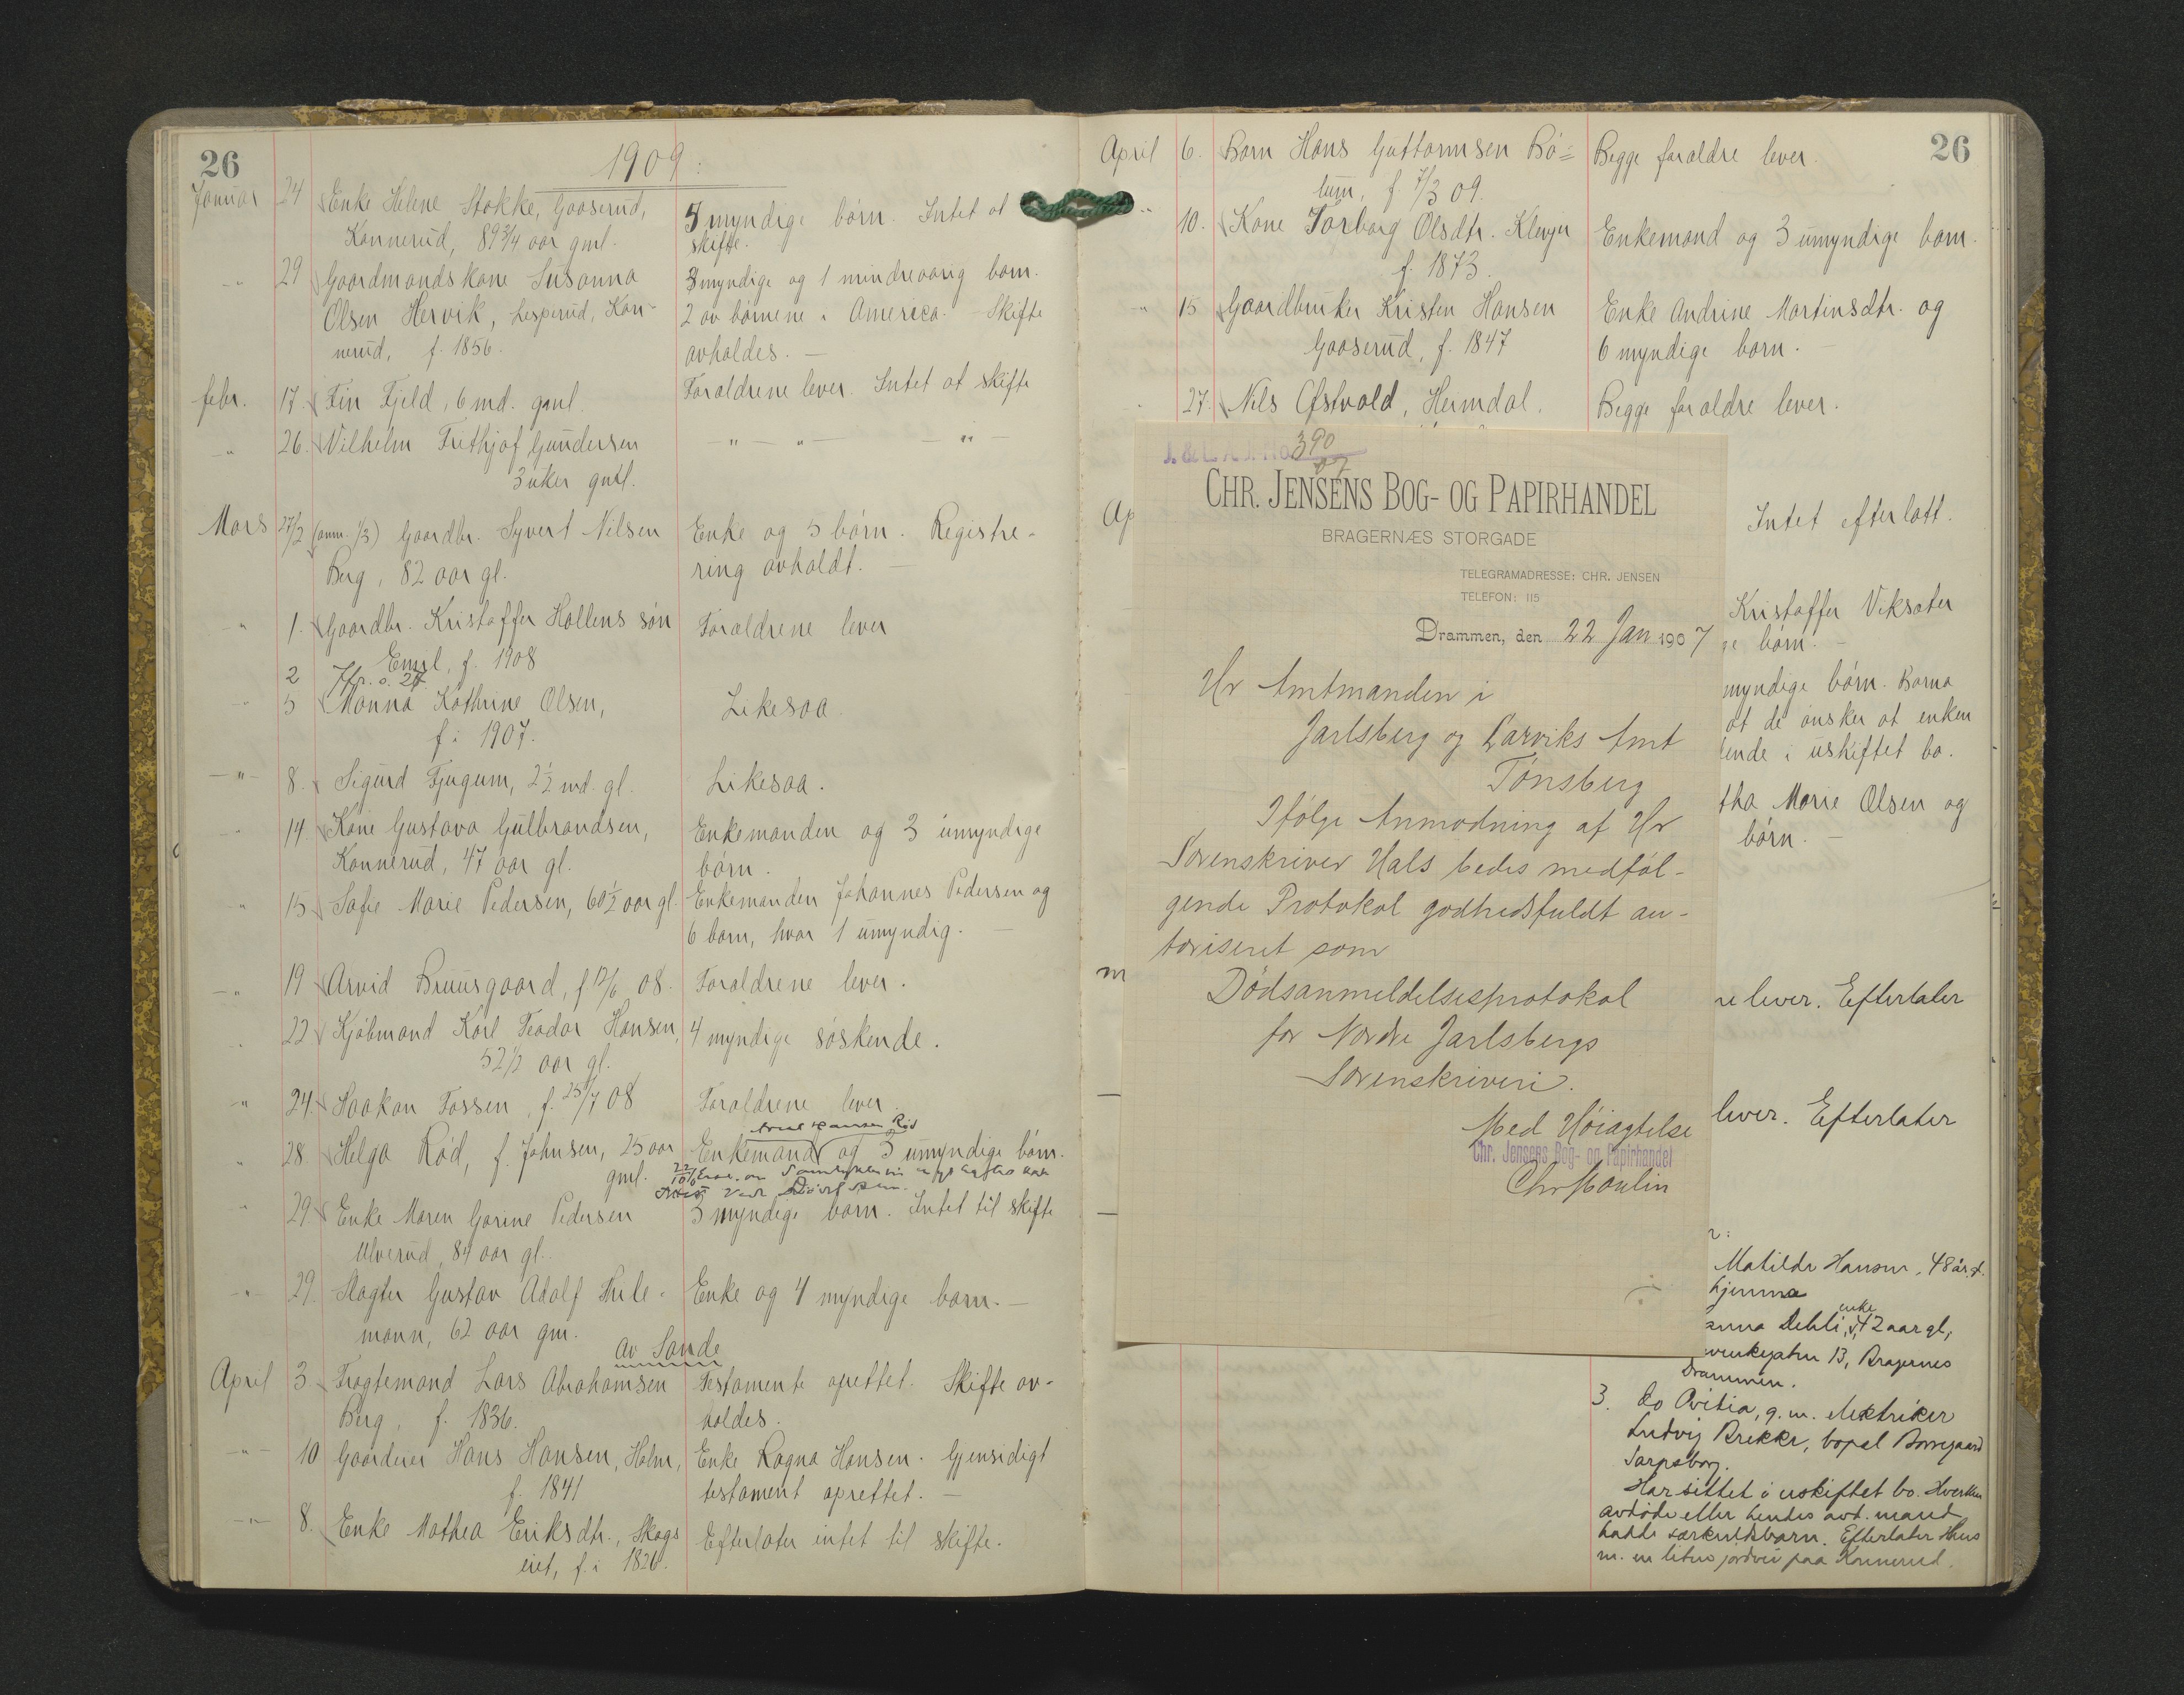 26
1909.
Januar 24 Enke Helene Stokke, Gaaserud, 5 myndige børn. Intet at
Konnerud, 89 3/4 aar gml. skifte.
-"- 29 Gaardmandskone Susanna 3 myndige og 1 mindreaarig barn.
Olsen Hervik, Lesperud, Kon- 2 av børnene i America. - Skifte
nerud, f. 1856. avholdes. -
febr. 17. Fin Fjeld, 6 md. gml. Forældrene lever. Intet at skifte
-"- 26. Vilhelm Frithjof Gundersen -"- -"- -"-
3 uker gml.
Mars 27/2 (anm. 1/3) Gaardbr. Syvert Nilsen Enke og 5 børn. Registre-
Berg, 82 aar gl. ring avholdt. -
-"- 1. Gaardbr. Kristoffer Hallens søn Forældrene lever
Emil, f. 1908
2
-"- 5 Manna Kathrine Olsen, Likesaa.
f. i 1907.
-"- 8. Sigurd Fjugum, 2 1/2 md. gl. Likesaa.
-"- 14. Kone Gustava Gulbrandsen, Enkemanden og 3 umyndige
Konnerud, 47 aar gl. børn.
" 15 Sofie Marie Pedersen, 60 1/2 aar gl. Enkemanden Johannes Pedersen og
6 barn, hvor 1 umyndig. -
-"- 19 Arvid Bruusgaard, f 12/6 08. Forældrene lever.
" 22 Kjøbmand Karl Teodor Hansen, 4 myndige søskende.
52 1/2 aar gl.
" 24. Haakon Fossen, f. 25/7 08 Forældrene lever.
Hansen Rød
" 28 Helga Rød, f. Johnsen, 25 aar Enkemand og 3 umyndige børn.
gml.
" 29. Enke Maren Garine Pedersen 5 myndige barn. Intet til skifte
Ulverud, 84 aar gl.
-"- 29. Slagter Gustav Adolf Thile- Enke og 4 myndige barn. -
mann, 62 aar gm.
av Sande
April 3 Fragtemand Lars Abrahamsen Testamente oprettet. Skifte av-
Berg, f. 1836. holdes.
-"- 10 Gaardeier Hans Hansen, Holm, Enke Ragna Hansen. Gjensidigt
f. 1841 testament oprettet. -
-"- 8. Enke Mathea Eriksdtr., Skogs Efterlater intet til skifte.
eiet, f. i 1826.
26
April 6. Barn Hans Guttormsen Bø- Begge forældre lever.
tum, f. 7/3 09.
" 10. Kone Torborg Olsdtr. Klevjer Enkemand og 3 umyndige barn.
f. 1873.
-"- 15 Gaardbruker Kristen Hansen Enke Andrine Martinsdtr. og
Gaaserud, f. 1847 6 myndige barn. -
27. Nils Ofstvold, Heimdal. Begge forældre lever.
Ap
Intet efterlatt.
Kristoffer Viksøter
ge børn. -
myndige børn. Barna
at de ønsker at enken
ende i uskiftet bo.
tha Marie Olsen og
børn. -
m
re lever. Efterlater
lever. Efterlater
r:
Matilde Hansen, 48 år g.
hjemme
enke
anna Dehli, 42 aar gl,
13, Bragernes
Drammen.
3. do Ovitia, g. m. elektriker
Ludvig Brekke, bopæl Borregaard
Sarpsborg.
Har sittet i uskiftet bo. Hverken
avdøde eller hendes avd. mand
hadde særkuldsbarn. Efterlater Hus
m. en liten jordvei paa Konnerud.
390
07
CHR. JENSENS BOG- OG PAPIRHANDEL
BRAGERNÆS STORGADE
TELEGRAMADRESSE: CHR. JENSEN
TELEFON: 115
Drammen, den 22 Jan 1907
Hr Amtmanden i
Jarlsberg og Larviks Amt
Tønsberg
Ifølge Anmodning af Hr
Sorenskriver Hals bedes medføl-
gende Protokol godhedsfuldt au-
toriseret som
Dødsanmeldelsesprotokol
for Nordre Jarlsbergs
Sorenskriveri.
Med Høiagtelse
Chr. Jensens Bog- og Papirhandel
Chr Moulin